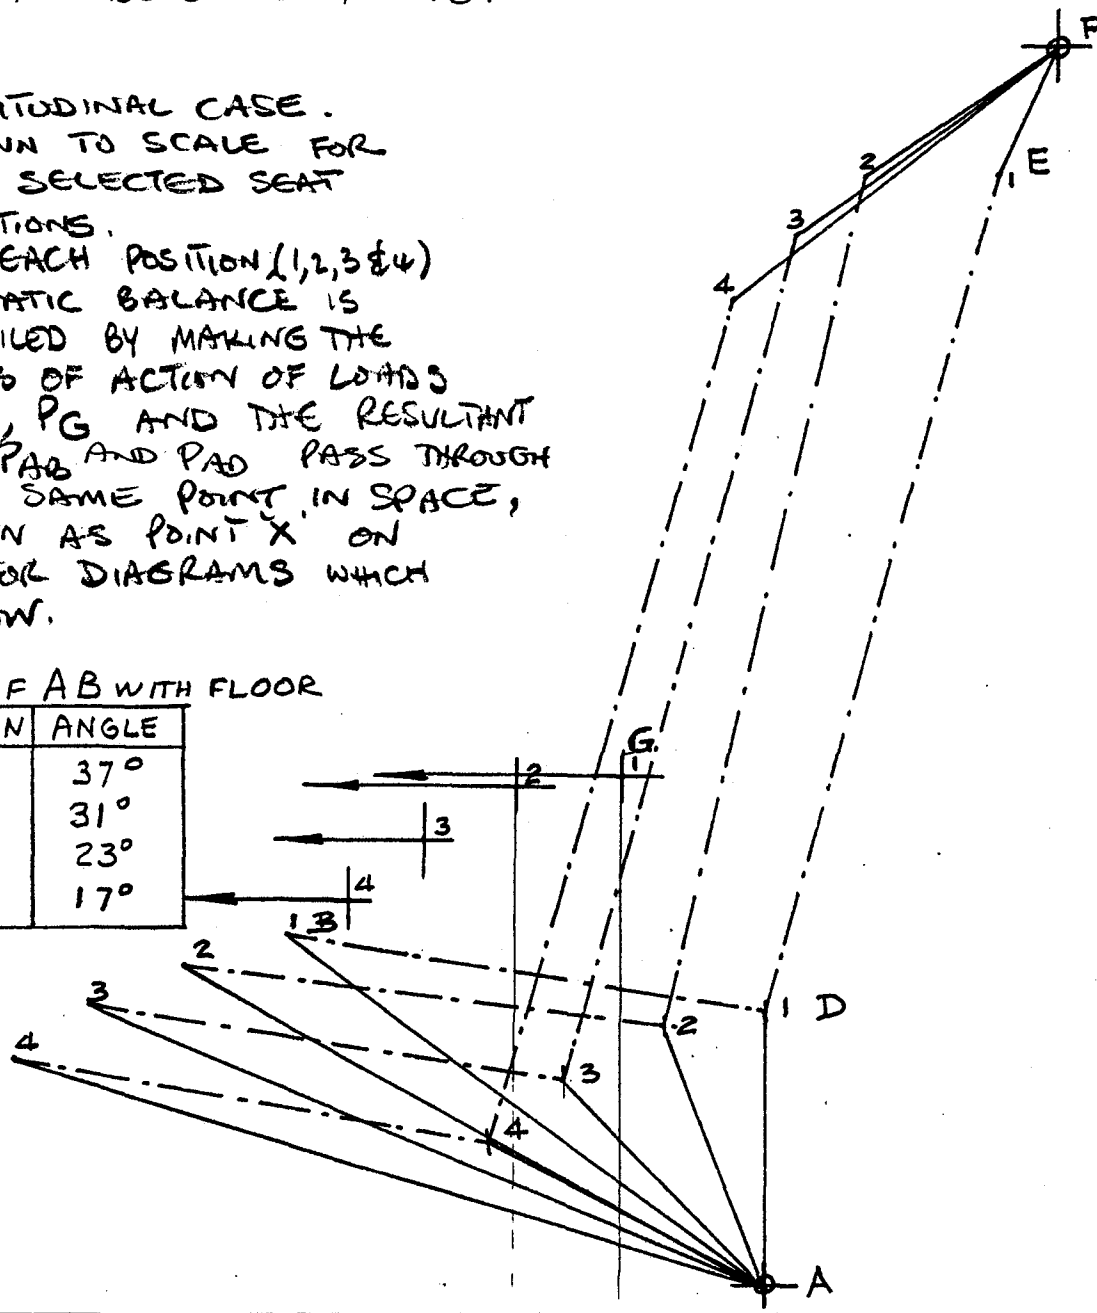 ITUDINAL CASE.
WN TO SCALE FOR
SELECTED SEAT
TIONS.
EACH POSITION (1,2,3 & 4)
ATIC BALANCE IS
ILED BY MAKING THE
OF ACTION OF LOADS
, PG AND THE RESULTANT
PAB AND PAD PASS THROUGH
SAME POINT IN SPACE,
N AS POINT 'X' ON
OR DIAGRAMS WHICH
OW.
F AB WITH FLOOR
N ANGLE
37°
31°
23°
17°
F
E
1
2
3
4
G.
1
2
3
4
1 B
2
3
4
1 D
2
3
4
A